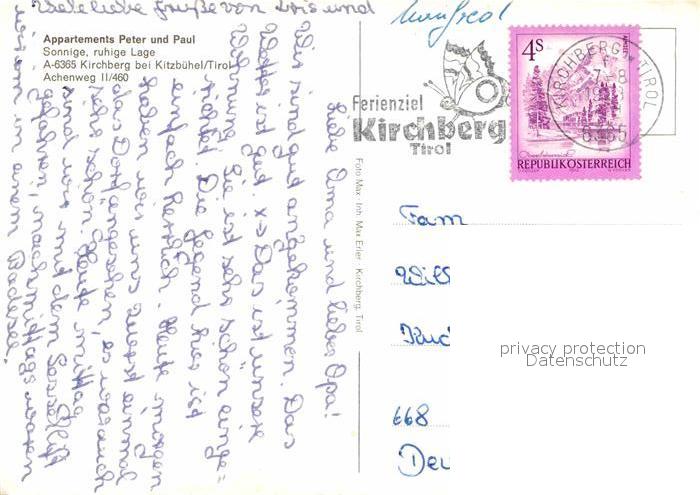 Viele liebe Grüße von Doris und
Manfred
Appartements Peter und Paul
Sonnige, ruhige Lage
A-6365 Kirchberg bei Kitzbühel/Tirol
Achenweg II/460
Liebe Oma und lieber Opa!
Wir sind gut angekommen. Das
Wetter ist gut. x = Das ist unsere
Wohnung. Sie ist sehr schön einge=
richtet. Die Gegend hier ist
einfach herrlich. Heute morgen
haben wir uns zuerst einmal
das Dorf angesehen, es war auch
sehr schön. Heute mittag
sind wir mit dem Sessellift
gefahren, nachmittags waren
wir in einem Badesee.
Foto Max, Inh. Max Erler - Kirchberg, Tirol
Ferienziel
Kirchberg
Tirol
4S
REPUBLIK ÖSTERREICH
KIRCHBERG, TIROL
7-8
6365
Fam
Will
668
Deu
privacy protection
Datenschutz